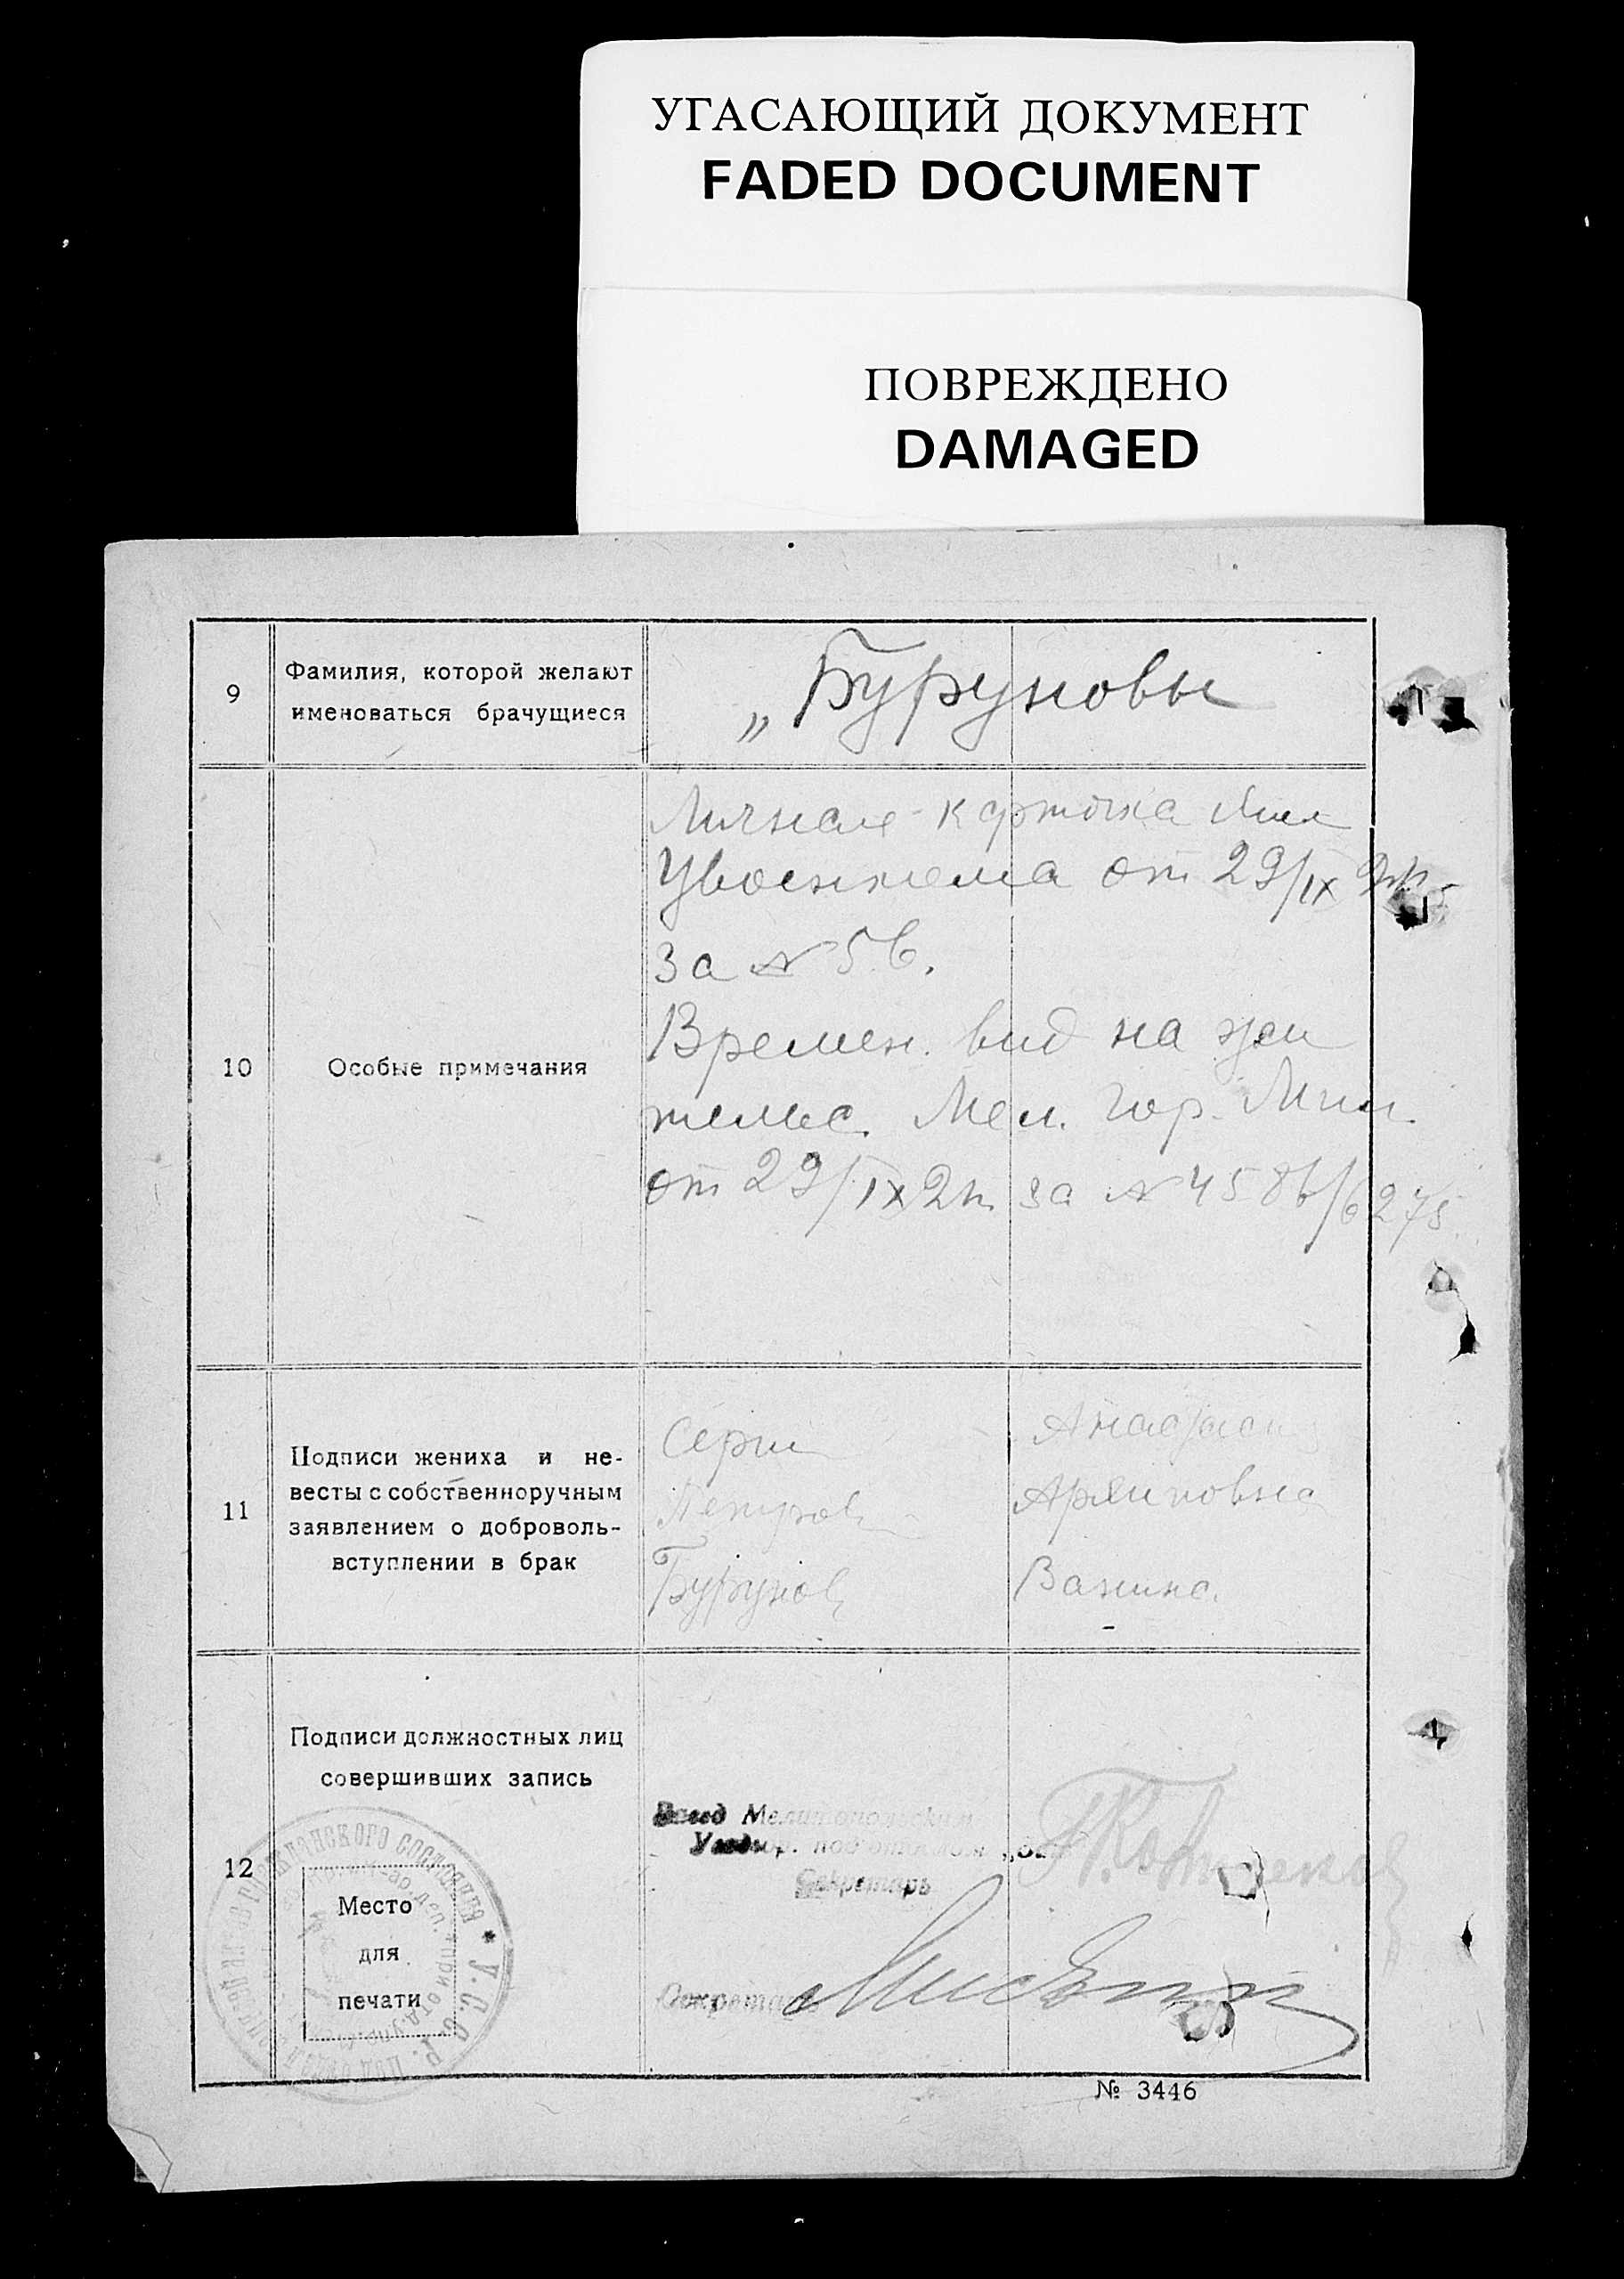 УГАСАЮЩИЙ ДОКУМЕНТ
FADED DOCUMENT
ПОВРЕЖДЕНО
DAMAGED
9
Фамилия, которой желают
именоваться брачущиеся
„Буруновы
10
Особые примечания
Личная карточка
Увоенкома от 29/IX
за № 56.
Времен. вид на жи
тельс. Мел. гор. Мил.
от 29/IX 2 г. за № 4586/6275.
11
Подписи жениха и не-
весты с собственноручным
заявлением о доброволь-
вступлении в брак
Сергей
Петров
Бурунов
Анастасия
Архиповна
Ванина.
12
Подписи должностных лиц
совершивших запись
Место
для
печати
ГРАЖДАНСКОГО СОСТОЯНИЯ * У. С. С. Р.
Завед Мелитопольским
Уезд. под отделом
Секретарь
Секретарь
№ 3446